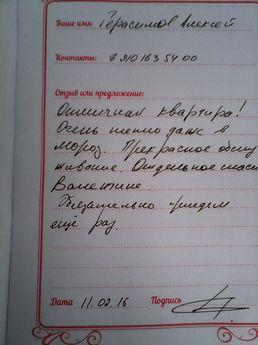 Ваше имя: Герасимов Алексей
Контакты: 8 910 163 54 00
Отзыв или предложение:
Отличная квартира!
Очень тепло даже в
мороз. Прекрасное обслу
живание. Отдельное спаси
Валентине.
Обязательно приедем
ещё раз.
Дата 11.02.16 Подпись